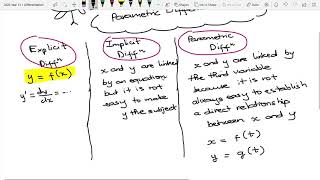 Parametric Diffⁿ
Explicit
Diffⁿ
y = f(x)
y' = dy/dx = ...
Implicit
Diffⁿ
x and y are linked
by an equation
but it is not
easy to make
y the subject
Parametric
Diffⁿ
x and y are linked by
the third variable
because it is not
always easy to establish
a direct relationship
between x and y
x = f(t)
y = g(t)